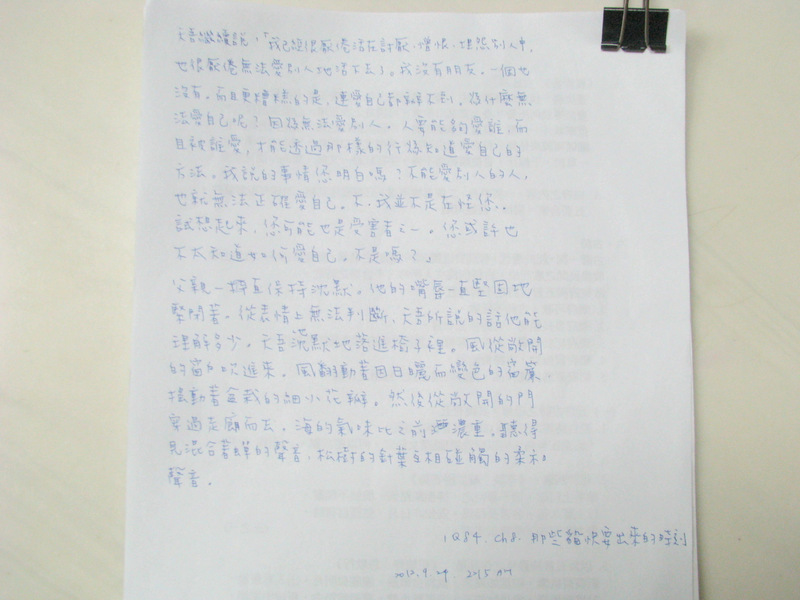 天吾繼續說,「我已經很厭倦活在討厭、憎恨、埋怨別人中,
也很厭倦無法愛別人地活下去」。我沒有朋友。一個也
沒有。而且更糟糕的是,連愛自己都辦不到。為什麼無
法愛自己呢?因為無法愛別人。人要能夠愛誰,而
且被誰愛,才能透過那樣的行為知道愛自己的
方法。我說的事情您明白嗎?不能愛別人的人,
也就無法正確愛自己。不,我並不是在怪您。
試想起來,您可能也是受害者之一。您或許也
不太知道如何愛自己。不是嗎?」
父親一擇直保持沈默。他的嘴唇一直堅固地
緊閉著。從表情上無法判斷,天吾所說的話他能
理解多少。天吾沈默地落進椅子裡。風從敞開
的窗戶吹進來。風翻動著因日曬而變色的窗簾,
搖動著盆栽的細小花瓣。然後從敞開的門
穿過走廊而去。海的氣味比之前濃重。聽得
見混合著蟬的聲音,松樹的針葉互相碰觸的柔和
聲音。
1Q84. Ch8. 那些貓快要出來的時刻
2012.9.24 2015